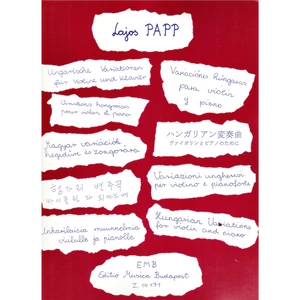 Lajos PAPP
Ungarische Variationen
für Violine und Klavier
Variaciónes húngaras
para violin
y piano
Variations hongroises
pour violon et piano
ハンガリアン変奏曲
ヴァイオリンとピアノのために
Magyar variációk
hegedűre és zongorára
Variazioni ungheresi
per violino e pianoforte
헝가리 변주곡
바이올린과 피아노
Unkarilaisia muunnelmia
viululle ja pianolle
Hungarian Variations
for violin and piano
EMB
Editio Musica Budapest